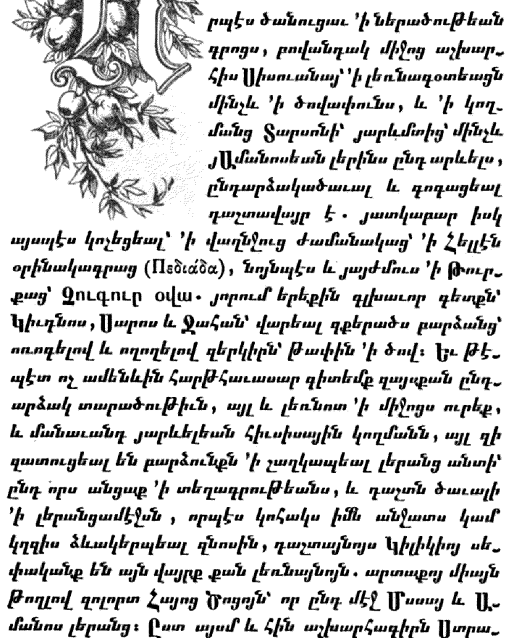 Որպէս ծանուցաւ ՚ի ներածութեան
գրոցս, բովանդակ միջոց աշխար֊
հիս Սիսուանայ՝ ՚ի լեռնագօտեացն
մինչև ՚ի ծովափունս, և ՚ի կող֊
մանց Տարսոնի՝ յարևմտից՝ մինչև
յԱմանոսեան լերինս ընդ արևելս,
ընդարձակածաւալ և գոգացեալ
դաշտավայր է. յատկաբար իսկ
այսպէս կոչեցեալ՝ ՚ի վաղնջուց ժամանակաց՝ ՚ի Հելլէն
օրինակագրաց (Πεδιάδα), նոյնպէս և յայժմուս ՚ի Թուր֊
քաց՝ Չուգուր օվա. յորում երեքին գլխաւոր գետքն՝
Կիւդնոս, Սարոս և Ջահան՝ վարեալ զքերածս բարձանց՝
ոռոգելով և ողողելով զերկիրն՝ թափին ՚ի ծով։ Եւ թէ֊
պէտ ոչ ամենևին հարթհաւասար գիտեմք զայսքան ընդ֊
արձակ տարածութիւն, այլ և լեռնոտ ՚ի միջոցս ուրեք,
և մանաւանդ յարևելեան հիւսիսային կողմանն, այլ զի
զատուցեալ են բարձունքն ՚ի շաղկապեալ լերանց անտի՝
ընդ որս անցաք ՚ի տեղագրութեանս, և դաշտն ծաւալի
՚ի լերանցամէջսն, որպէս կոհակս իմն անջատս կամ
կղզիս ձևակերպեալ զնոսին, դաշտայնոյս Կիլիկիոյ սե֊
փականք են այն վայրք քան լեռնայնոյն. արտաքոյ միայն
թողլով զոլորտ Հայոց Ծոցոյն՝ որ ընդ մէջ Մսսայ և Ա֊
մանոս լերանց։ Ըստ այսմ և հին աշխարհագիրն Ստրա֊